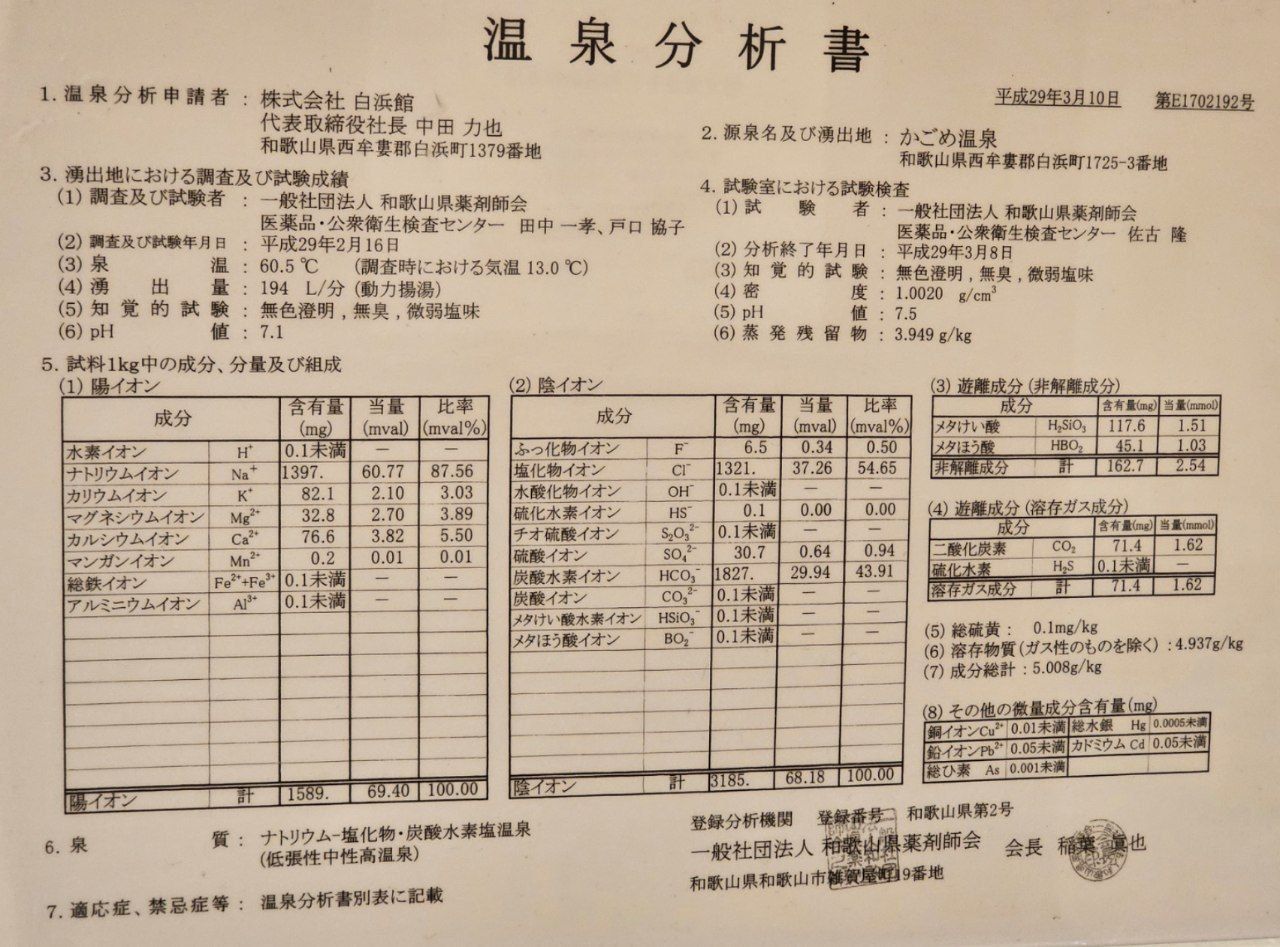 温泉分析書
平成29年3月10日 第E1702192号
1. 温泉分析申請者 : 株式会社 白浜館
代表取締役社長 中田 力也
和歌山県西牟婁郡白浜町1379番地
2. 源泉名及び湧出地 : かごめ温泉
和歌山県西牟婁郡白浜町1725-3番地
3. 湧出地における調査及び試験成績
(1) 調査及び試験者 : 一般社団法人 和歌山県薬剤師会
医薬品・公衆衛生検査センター 田中 一孝、戸口 協子
(2) 調査及び試験年月日 : 平成29年2月16日
(3) 泉温 : 60.5 ℃ (調査時における気温 13.0 ℃)
(4) 湧出量 : 194 L/分 (動力揚湯)
(5) 知覚的試験 : 無色澄明 , 無臭 , 微弱塩味
(6) pH値 : 7.1
4. 試験室における試験検査
(1) 試験者 : 一般社団法人 和歌山県薬剤師会
医薬品・公衆衛生検査センター 佐古 隆
(2) 分析終了年月日 : 平成29年3月8日
(3) 知覚的試験 : 無色澄明 , 無臭 , 微弱塩味
(4) 密度 : 1.0020 g/cm³
(5) pH値 : 7.5
(6) 蒸発残留物 : 3.949 g/kg
5. 試料1kg中の成分、分量及び組成
(1) 陽イオン
成分 含有量(mg) 当量(mval) 比率(mval%)
水素イオン H⁺ 0.1未満 — —
ナトリウムイオン Na⁺ 1397. 60.77 87.56
カリウムイオン K⁺ 82.1 2.10 3.03
マグネシウムイオン Mg²⁺ 32.8 2.70 3.89
カルシウムイオン Ca²⁺ 76.6 3.82 5.50
マンガンイオン Mn²⁺ 0.2 0.01 0.01
総鉄イオン Fe²⁺+Fe³⁺ 0.1未満 — —
アルミニウムイオン Al³⁺ 0.1未満 — —
陽イオン 計 1589. 69.40 100.00
(2) 陰イオン
成分 含有量(mg) 当量(mval) 比率(mval%)
ふっ化物イオン F⁻ 6.5 0.34 0.50
塩化物イオン Cl⁻ 1321. 37.26 54.65
水酸化物イオン OH⁻ 0.1未満 — —
硫化水素イオン HS⁻ 0.1 0.00 0.00
チオ硫酸イオン S₂O₃²⁻ 0.1未満 — —
硫酸イオン SO₄²⁻ 30.7 0.64 0.94
炭酸水素イオン HCO₃⁻ 1827. 29.94 43.91
炭酸イオン CO₃²⁻ 0.1未満 — —
メタけい酸水素イオン HSiO₃⁻ 0.1未満 — —
メタほう酸イオン BO₂⁻ 0.1未満 — —
陰イオン 計 3185. 68.18 100.00
(3) 遊離成分 (非解離成分)
成分 含有量(mg) 当量(mmol)
メタけい酸 H₂SiO₃ 117.6 1.51
メタほう酸 HBO₂ 45.1 1.03
非解離成分 計 162.7 2.54
(4) 遊離成分 (溶存ガス成分)
成分 含有量(mg) 当量(mmol)
二酸化炭素 CO₂ 71.4 1.62
硫化水素 H₂S 0.1未満 —
溶存ガス成分 計 71.4 1.62
(5) 総硫黄 : 0.1mg/kg
(6) 溶存物質 (ガス性のものを除く) : 4.937g/kg
(7) 成分総計 : 5.008g/kg
(8) その他の微量成分含有量(mg)
銅イオンCu²⁺ 0.01未満 総水銀 Hg 0.0005未満
鉛イオンPb²⁺ 0.05未満 カドミウム Cd 0.05未満
総ひ素 As 0.001未満
6. 泉質 : ナトリウム-塩化物・炭酸水素塩温泉
(低張性中性高温泉)
7. 適応症、禁忌症等 : 温泉分析書別表に記載
登録分析機関 登録番号 和歌山県第2号
一般社団法人 和歌山県薬剤師会 会長 稲葉 眞也
和歌山県和歌山市雑賀屋町19番地